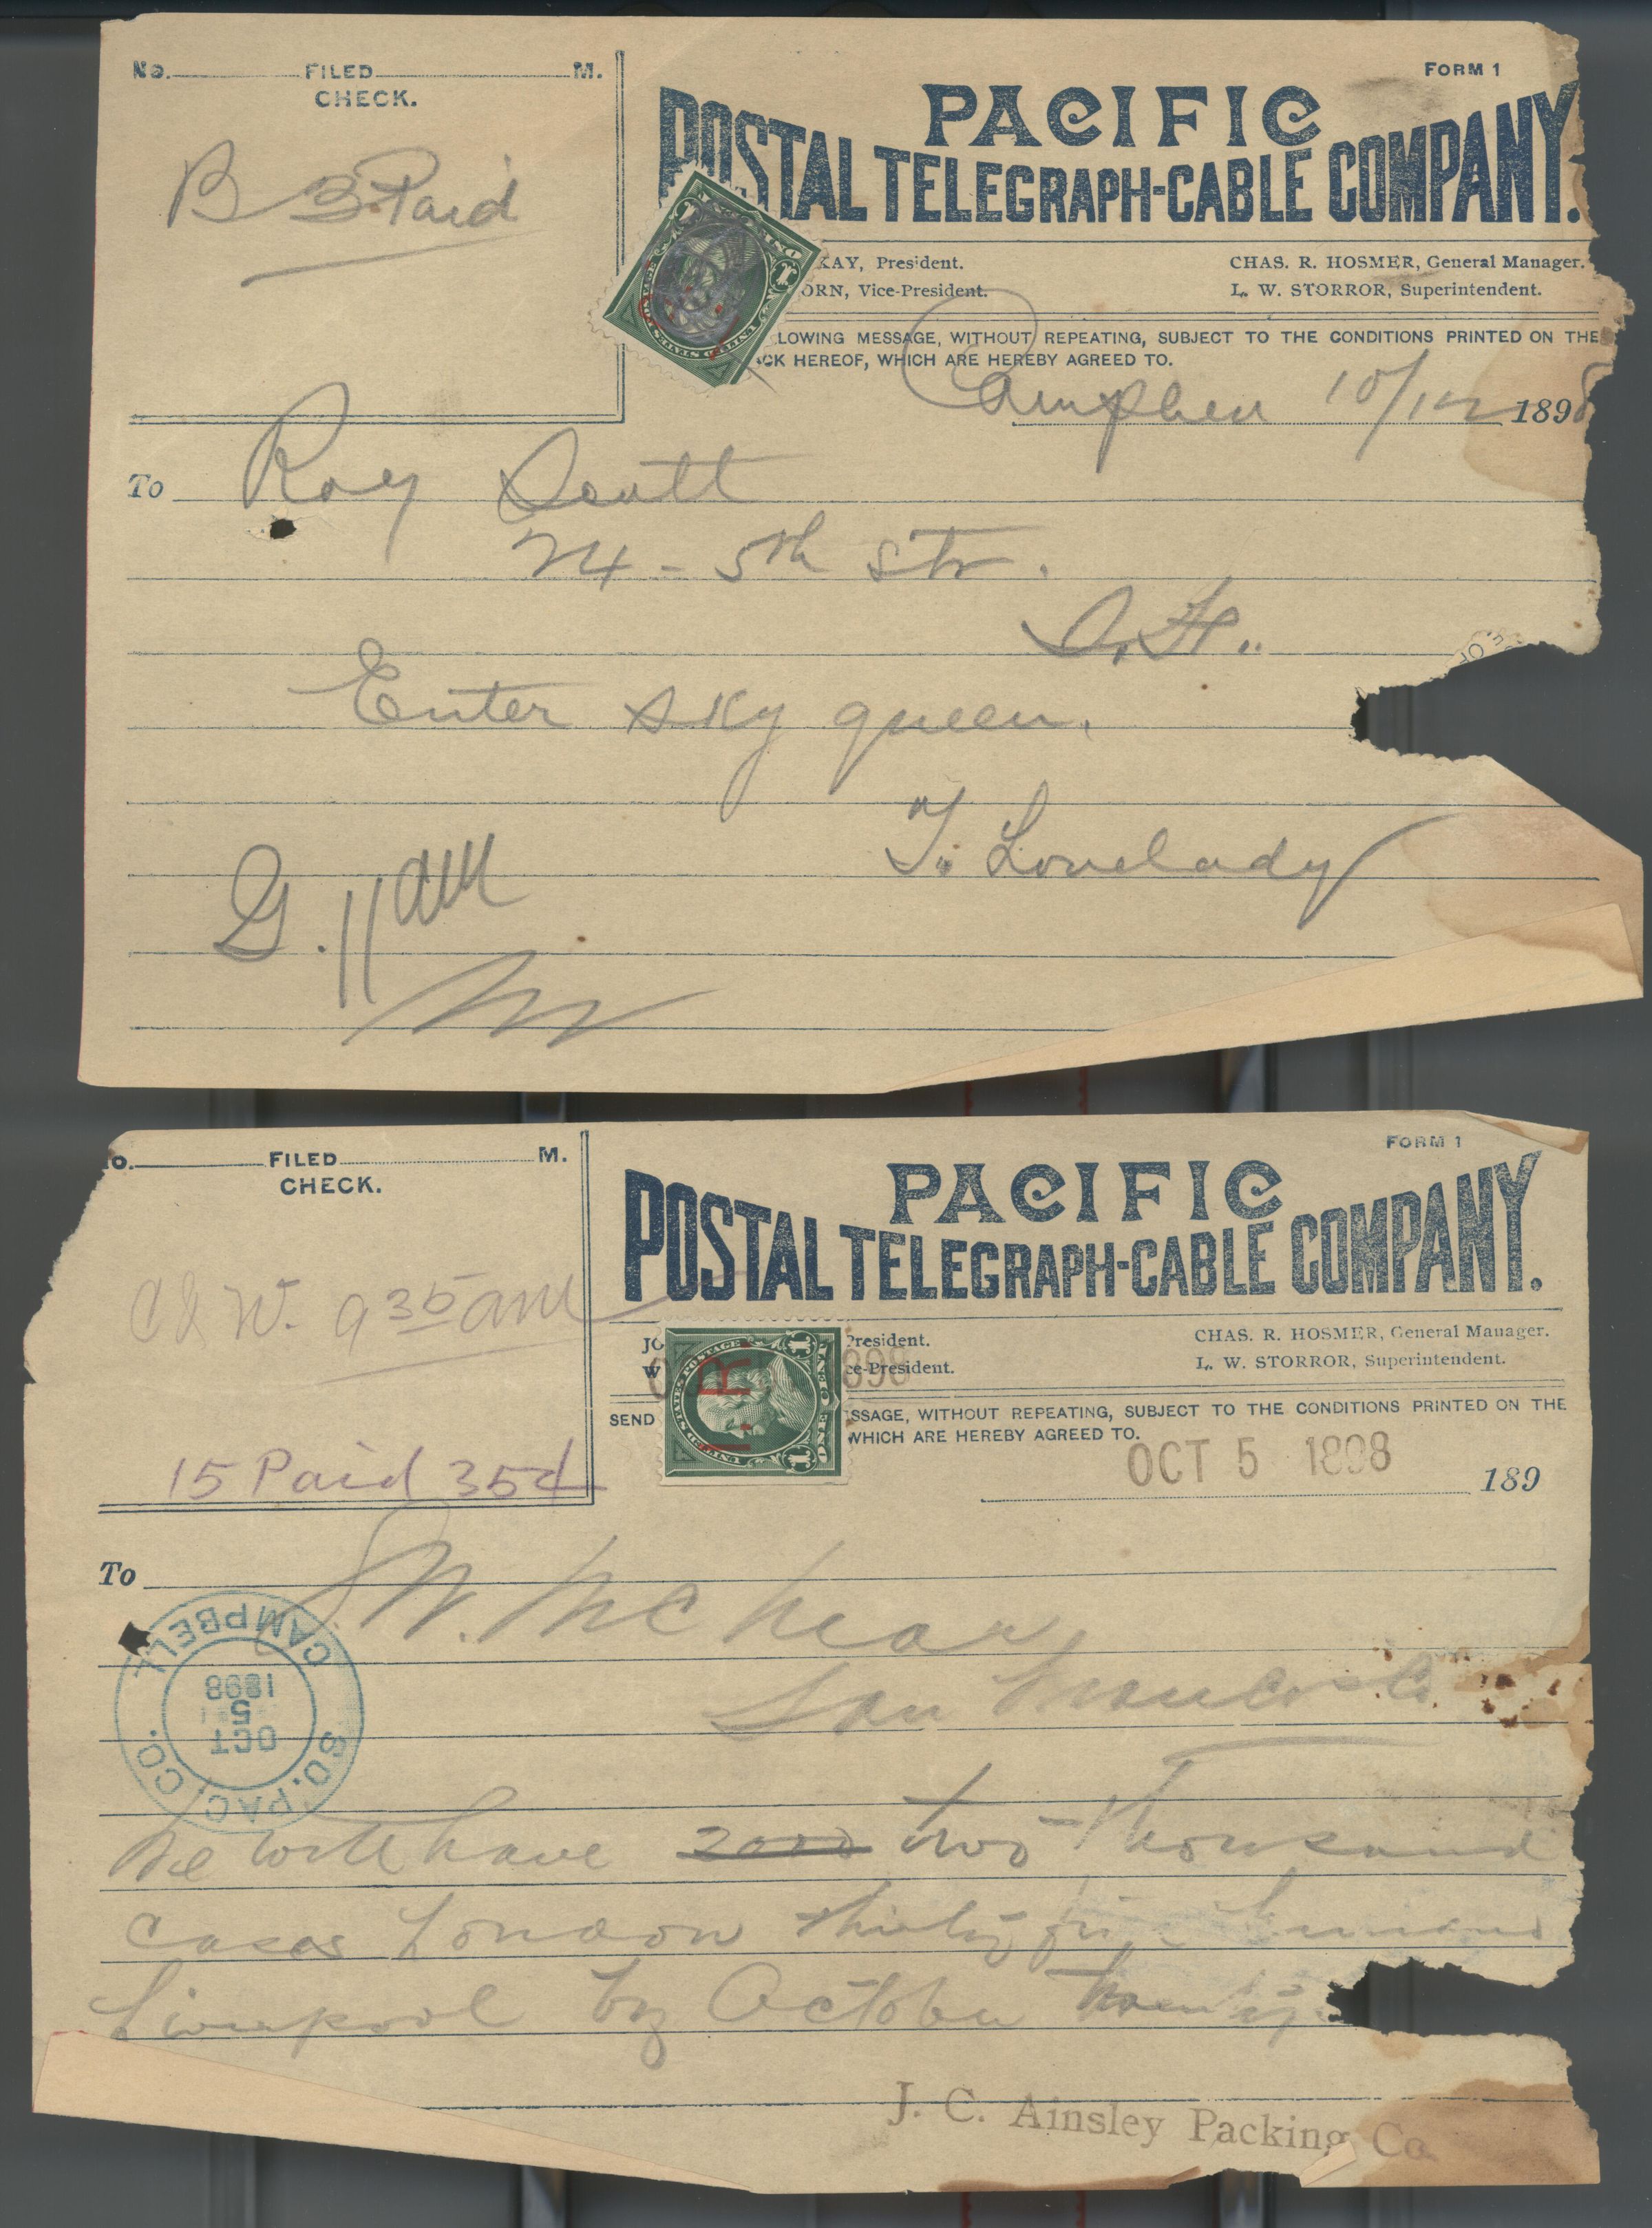 No. FILED M.
CHECK.
B 3 Paid
FORM 1
PACIFIC
POSTAL TELEGRAPH-CABLE COMPANY.
KAY, President.
CHAS. R. HOSMER, General Manager.
ORN, Vice-President.
L. W. STORROR, Superintendent.
LOWING MESSAGE, WITHOUT REPEATING, SUBJECT TO THE CONDITIONS PRINTED ON THE
CK HEREOF, WHICH ARE HEREBY AGREED TO.
10/12 1898
To Roy Scott
24 - 5th Str.
S.F.
Enter sky queen.
T. Lovelady
G. 11 am
o. FILED M.
CHECK.
935 am
15 Paid 35¢
FORM 1
PACIFIC
POSTAL TELEGRAPH-CABLE COMPANY.
JO President.
CHAS. R. HOSMER, General Manager.
W ce-President.
L. W. STORROR, Superintendent.
UNITED STATES POSTAGE
ONE CENT ONE
1 1
I.R.
O 898
SEND SSAGE, WITHOUT REPEATING, SUBJECT TO THE CONDITIONS PRINTED ON THE
WHICH ARE HEREBY AGREED TO.
OCT 5 1898 189
To
San Francisco
SO. PAC. CO.
OCT
5
1898
CAMPBELL
We will have 2000 two Thousand
cases London thirty
Liverpool by October
J. C. Ainsley Packing Co.